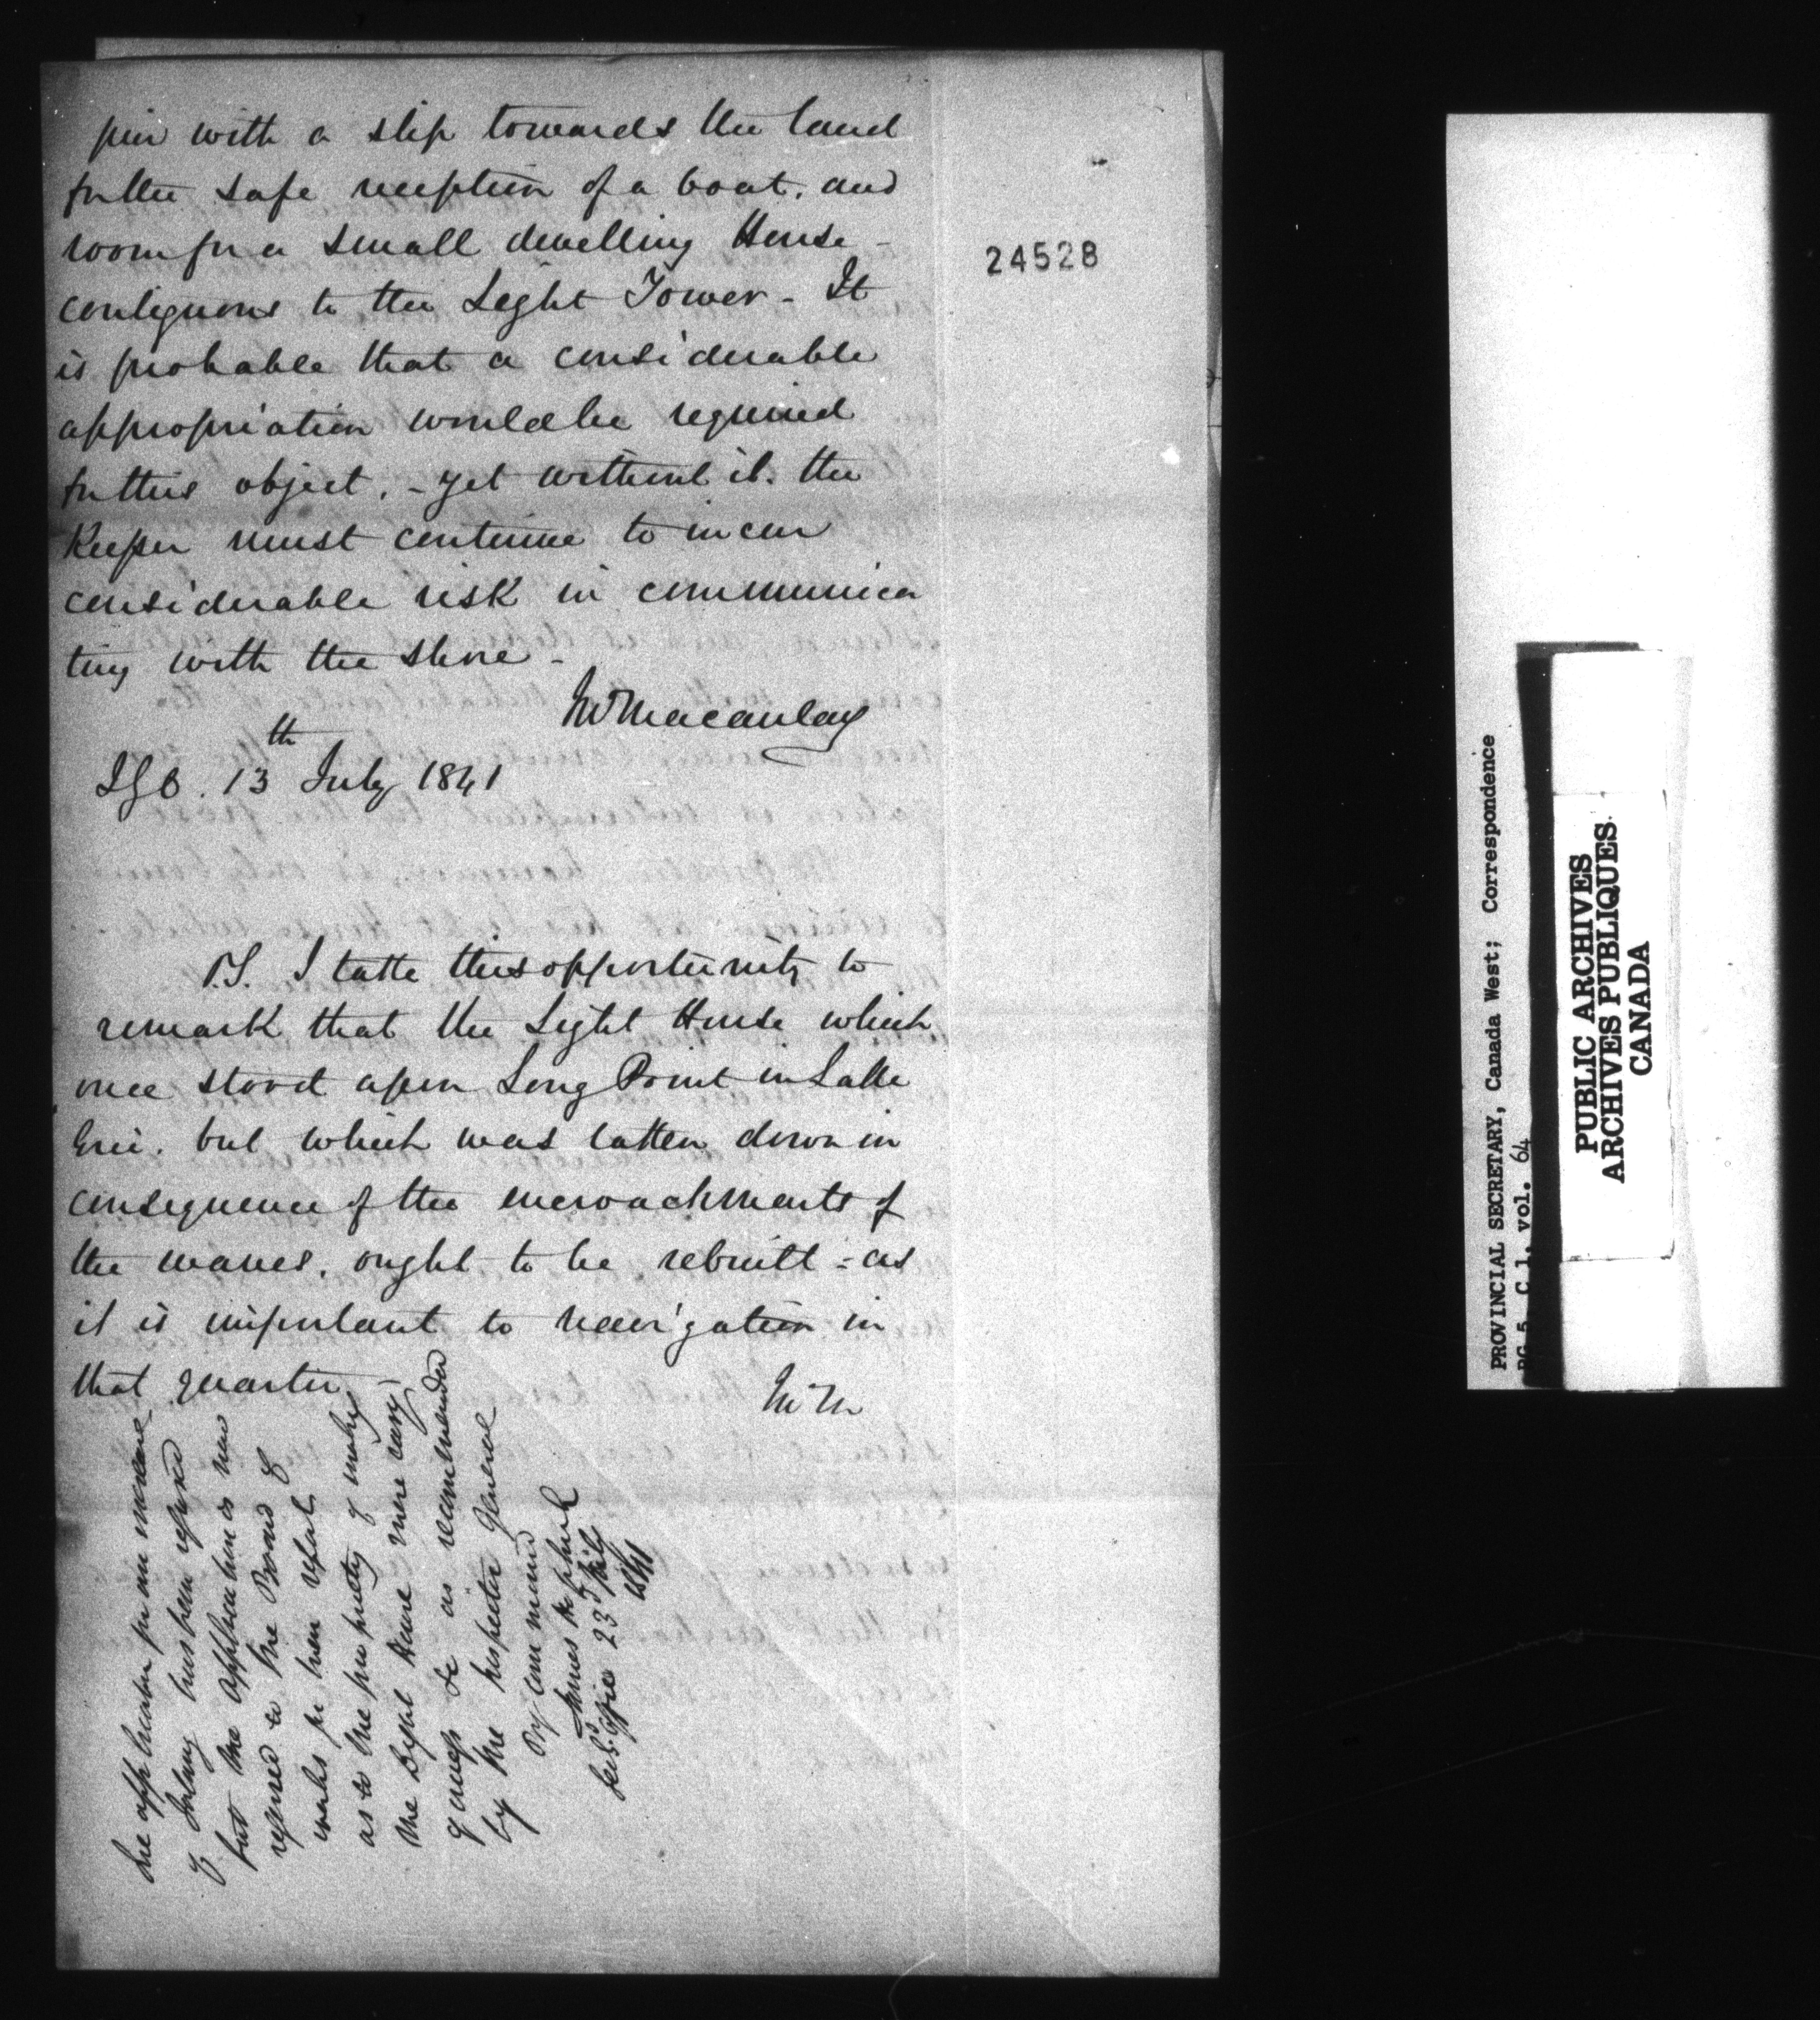 pier with a slip towards the land
for the safe reception of a boat, and
room for a small dwelling House -
contiguous to the Light Tower - It
is probable that a considerable
appropriation would be required
for this object, - yet without it, the
Keeper must continue to incur
considerable risk in communica
ting with the shore -
Macaulay
I G O. 13th July 1841
P.S. I take this opportunity to
remark that the Light House which
once stood upon Long Point in Lake
Erie, but which was taken down in
consequence of the encroachments of
the waves, ought to be rebuilt - as
it is important to navigation in
that quarter -
The application for an increase
of Salary has been refused
but the application is now
referred to the Board of
works for their report
as to the propriety of making
the Light House more easy
of access &c as recommended
by the Inspector General
By command
James Hopkirk
Sec's Office 23d July
1841
24528
PROVINCIAL SECRETARY, Canada West; Correspondence
RG 5, C 1, vol. 64
PUBLIC ARCHIVES
ARCHIVES PUBLIQUES
CANADA